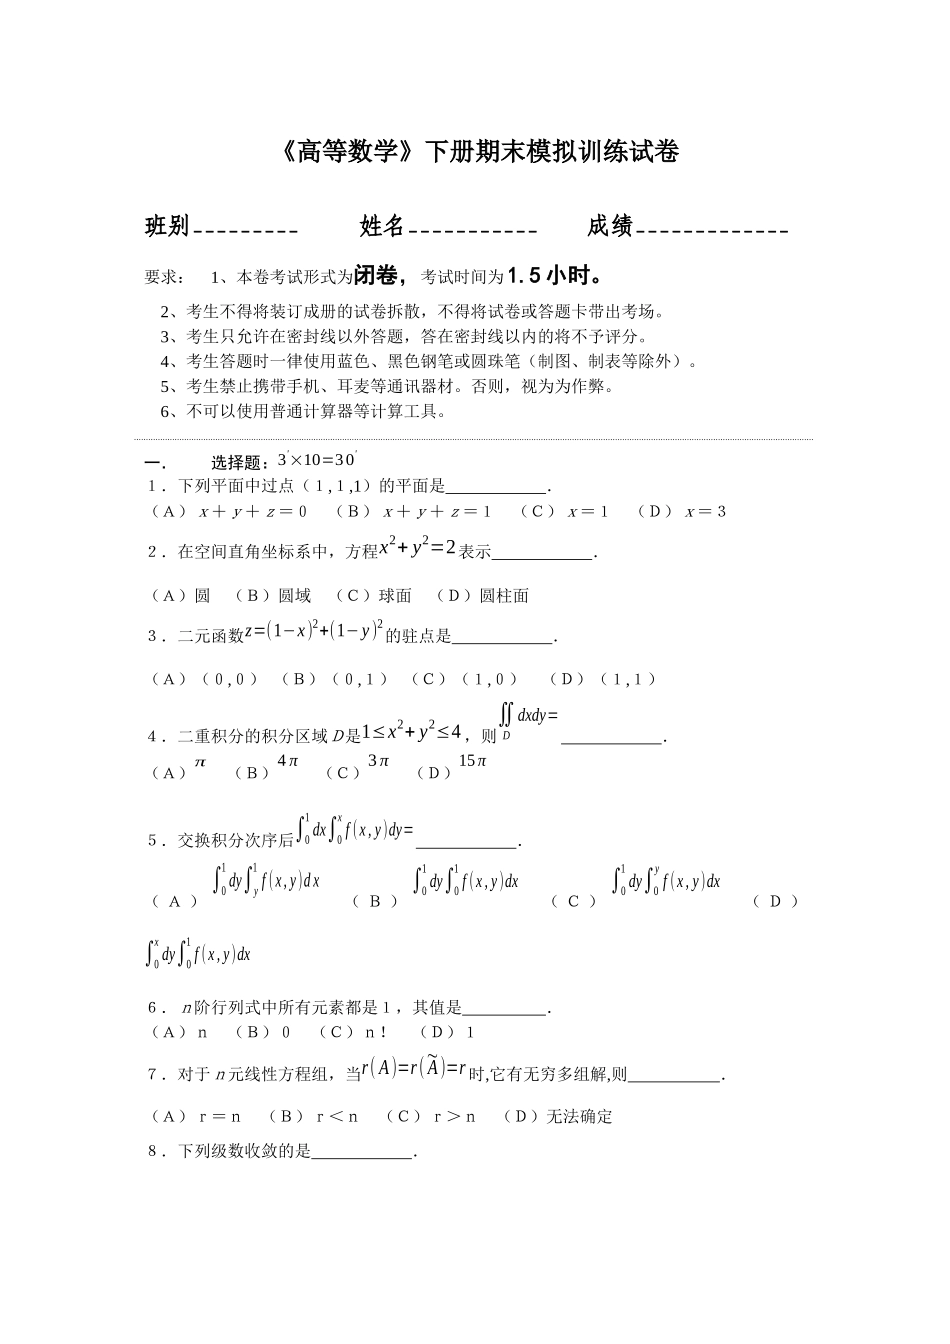 《高等数学》下册期末模拟训练试卷
班别_________ 姓名___________ 成绩_____________
要求： 1、本卷考试形式为闭卷，考试时间为1.5小时。
2、考生不得将装订成册的试卷拆散，不得将试卷或答题卡带出考场。
3、考生只允许在密封线以外答题，答在密封线以内的将不予评分。
4、考生答题时一律使用蓝色、黑色钢笔或圆珠笔（制图、制表等除外）。
5、考生禁止携带手机、耳麦等通讯器材。否则，视为为作弊。
6、不可以使用普通计算器等计算工具。
一． 选择题：3'×10=30'
１．下列平面中过点（１,１,1）的平面是____________．
（Ａ）x＋y＋z＝０ （Ｂ）x＋y＋z＝１ （Ｃ）x＝１ （Ｄ）x＝３
２．在空间直角坐标系中，方程x²+y²=2表示____________．
（Ａ）圆 （Ｂ）圆域 （Ｃ）球面 （Ｄ）圆柱面
３．二元函数z=(1−x)²+(1−y)²的驻点是____________．
（Ａ）（０,０） （Ｂ）（０,１） （Ｃ）（１,０） （Ｄ）（１,１）
４．二重积分的积分区域D是1≤x²+y²≤4，则∬_D dxdy=____________．
（Ａ）π （Ｂ）4π （Ｃ）3π （Ｄ）15π
５．交换积分次序后∫₀¹dx∫₀ˣf(x,y)dy=____________．
（Ａ）∫₀¹dy∫_y^1 f(x,y)dx （Ｂ）∫₀¹dy∫₀¹f(x,y)dx （Ｃ）∫₀¹dy∫₀ʸf(x,y)dx （Ｄ）
∫₀ˣdy∫₀¹f(x,y)dx
６．n阶行列式中所有元素都是１，其值是__________．
（Ａ）ｎ （Ｂ）０ （Ｃ）ｎ！ （Ｄ）１
７．对于n元线性方程组，当r(A)=r(Ã)=r时,它有无穷多组解,则___________．
（Ａ）ｒ＝ｎ （Ｂ）ｒ＜ｎ （Ｃ）ｒ＞ｎ （Ｄ）无法确定
８．下列级数收敛的是____________．